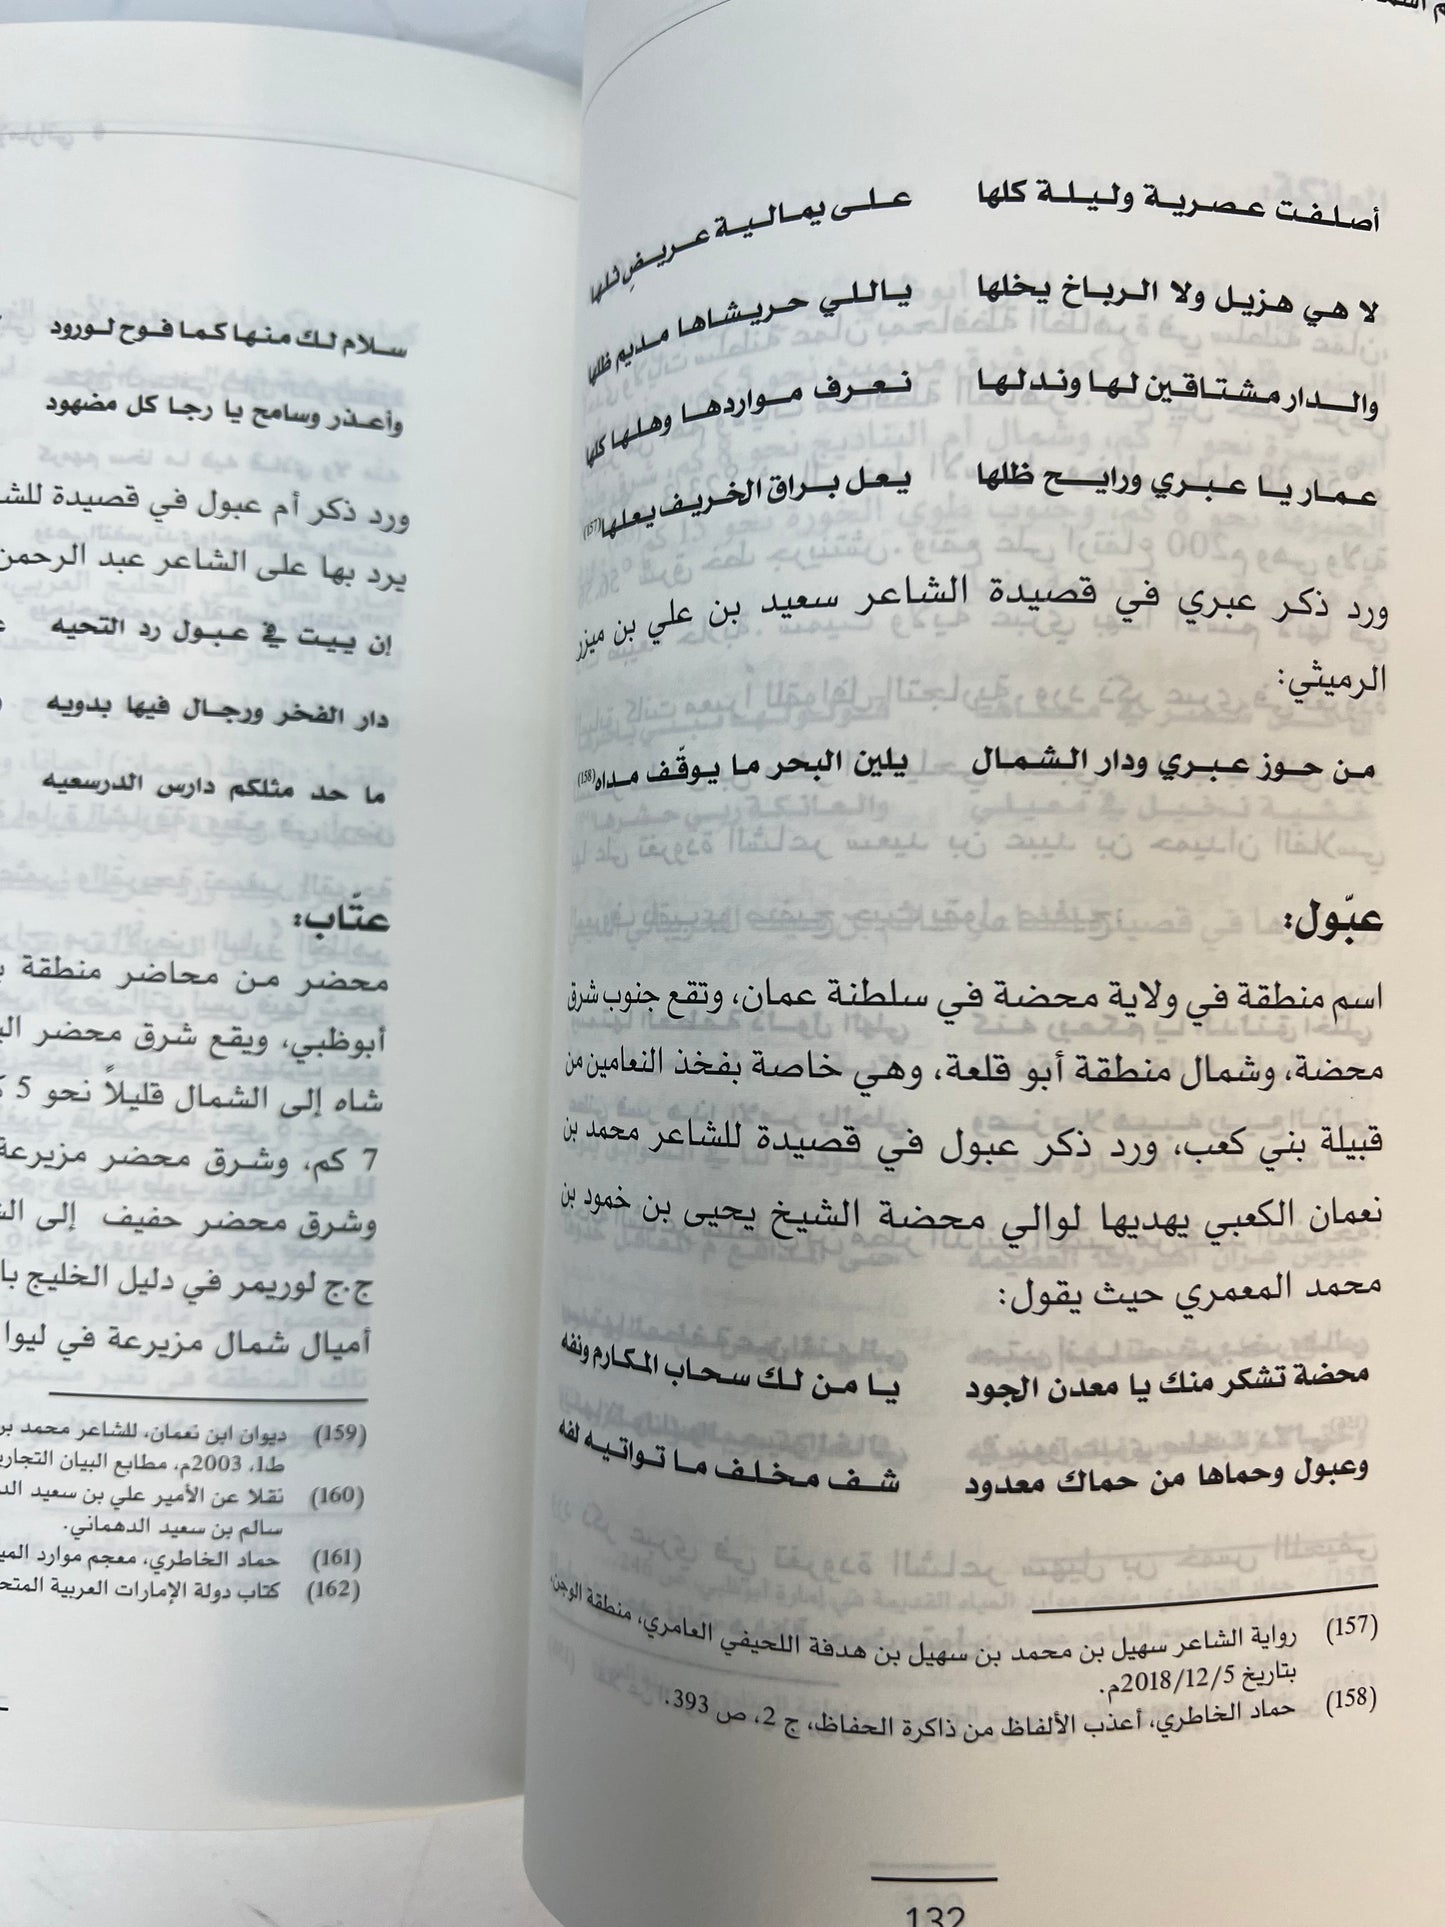 أصلفت عصرية وليلة كلها على يمالية عريض ثلها
لا هي هزيل ولا الرباخ يخلها ياللي حريشاها مديم ظلها
والدار مشتاقين لها وندلها نعرف مواردها وهلها كلها
عمار يا عبري ورايح ظلها يعل براق الخريف يعلها(157)
ورد ذكر عبري في قصيدة الشاعر سعيد بن علي بن ميزر
الرميثي:
من حوز عبري ودار الشمال يلين البحر ما يوقّف مداه(158)
عبّول:
اسم منطقة في ولاية محضة في سلطنة عمان، وتقع جنوب شرق
محضة، وشمال منطقة أبو قلعة، وهي خاصة بفخذ النعامين من
قبيلة بني كعب، ورد ذكر عبول في قصيدة للشاعر محمد بن
نعمان الكعبي يهديها لوالي محضة الشيخ يحيى بن خمود بن
محمد المعمري حيث يقول:
محضة تشكر منك يا معدن الجود يا من لك سحاب المكارم ونفه
وعبول وحماها من حماك معدود شف مخلف ما تواتيه لفه
(157) رواية الشاعر سهيل بن محمد بن سهيل بن هدفة اللحيفي العامري، منطقة الوجن،
بتاريخ 2018/12/5م.
(158) حماد الخاطري، أعذب الألفاظ من ذاكرة الحفاظ، ج 2، ص 393.
132
سلام لك منها كما فوح لورود
وأعذر وسامح يا رجا كل مضهود
ورد ذكر أم عبول في قصيدة
يرد بها على الشاعر عبد الرحمن
إن ييت في عبول رد التحيه
دار الفخر ورجال فيها بدويه
ما حد مثلكم دارس الدرسعيه
عتّاب:
محضر من محاضر منطقة
أبوظبي، ويقع شرق محضر
شاه إلى الشمال قليلاً نحو 5
7 كم، وشرق محضر مزيرعة
وشرق محضر حفيف إلى
ج.ج لوريمر في دليل الخليج
أميال شمال مزيرعة في ليوا
(159) ديوان ابن نعمان، للشاعر محمد بن
ط1، 2003م، مطابع البيان
(160) نقلا عن الأمير علي بن سعيد
سالم بن سعيد الدهماني.
(161) حماد الخاطري، معجم موارد
(162) كتاب دولة الإمارات العربية